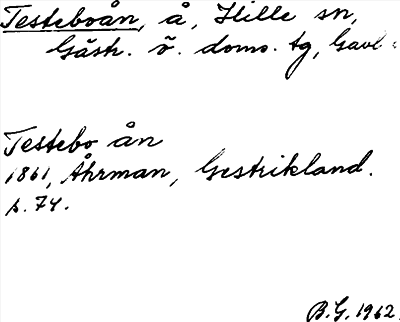 Testeboån, å, Hille sn,
Gästr. ö. doms. tg, Gävl
Testebo ån
1861, Åhrman, Gestrikland.
s. 74.
B.G. 1962.